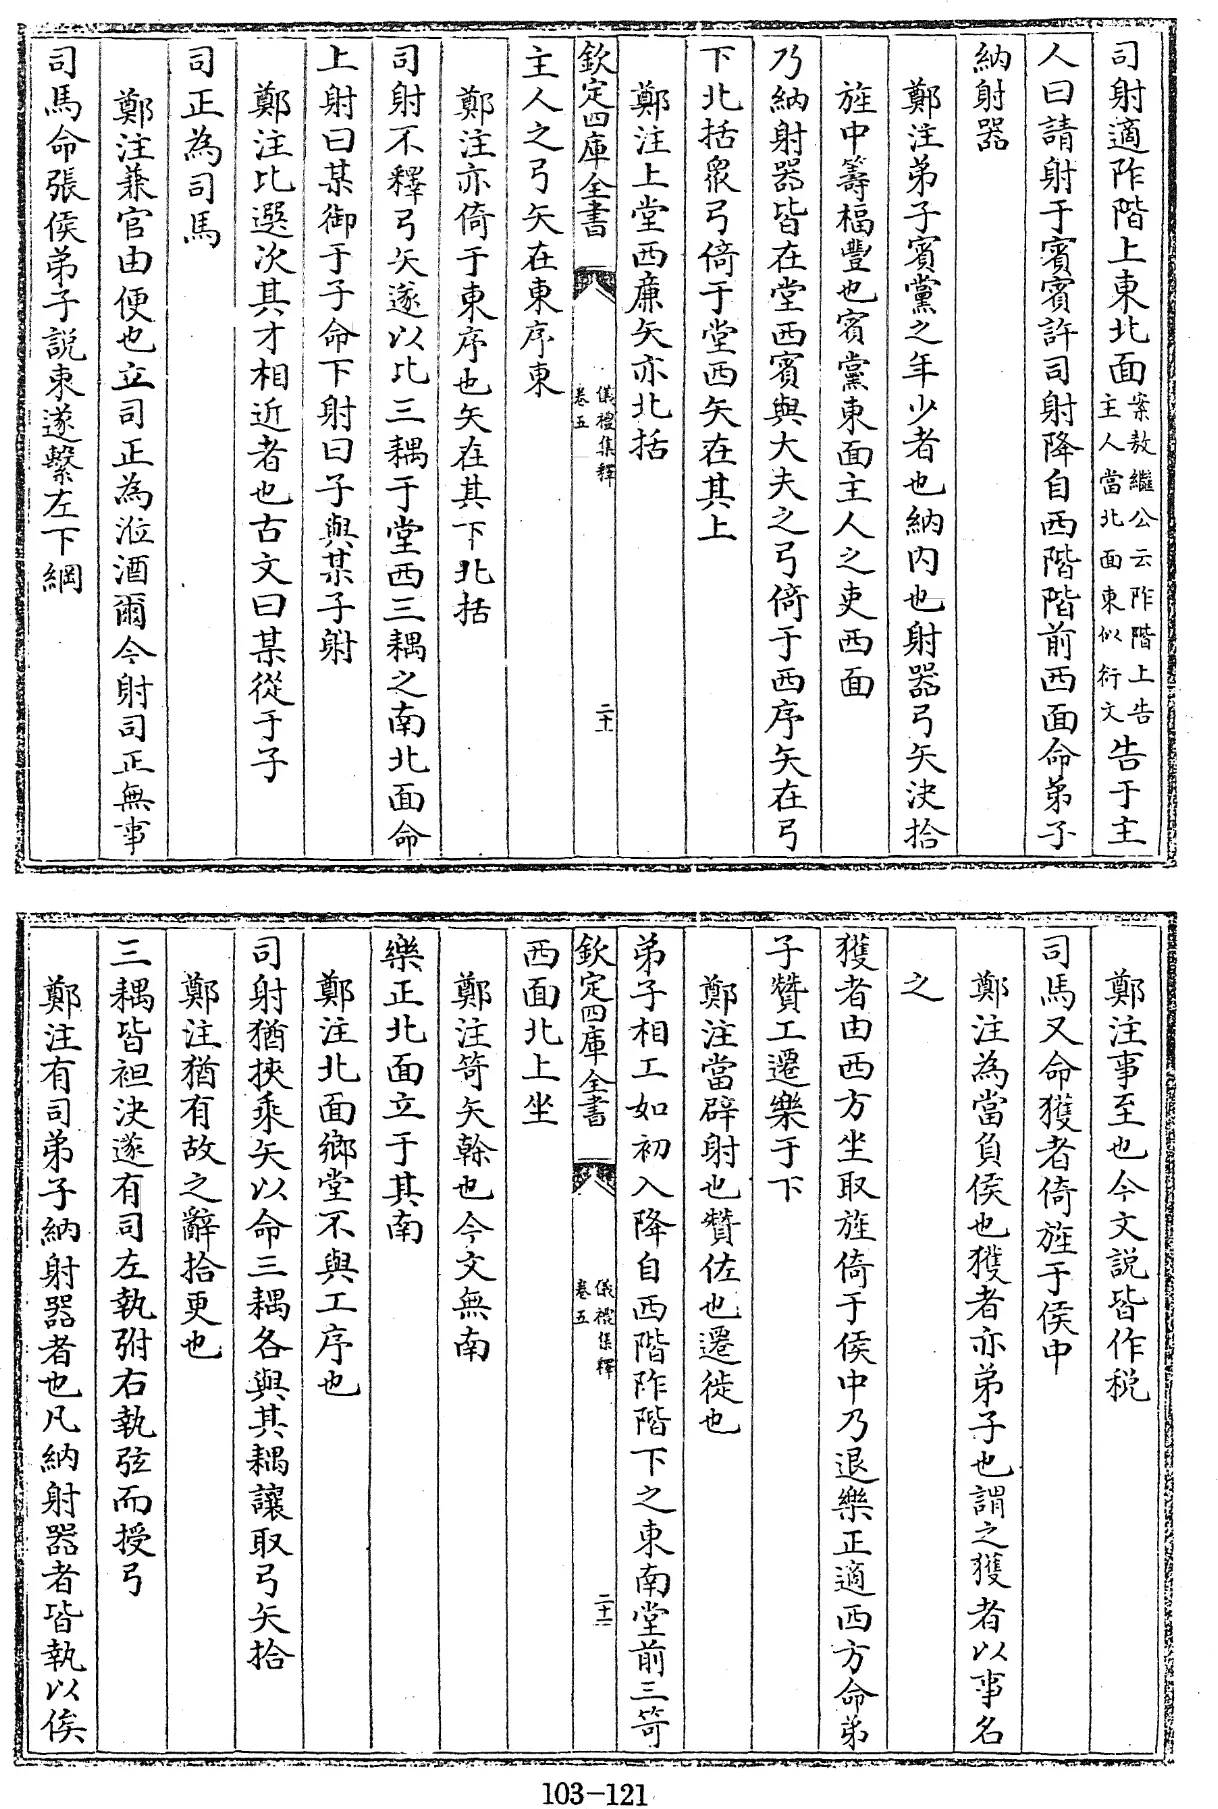 司射適阼階上東北面案敖繼公云阼階上告主人當北面東似衍文告于主
人曰請射于賓賓許司射降自西階階前西面命弟子
納射器
鄭注弟子賓黨之年少者也納内也射器弓矢決拾
旌中籌楅豐也賓黨東面主人之吏西面
乃納射器皆在堂西賓與大夫之弓倚于西序矢在弓
下北括衆弓倚于堂西矢在其上
鄭注上堂西廉矢亦北括
欽定四庫全書
儀禮集釋
卷五
二十
主人之弓矢在東序東
鄭注亦倚于東序也矢在其下北括
司射不釋弓矢遂以比三耦于堂西三耦之南北面命
上射曰某御于子命下射曰子與某子射
鄭注比選次其才相近者也古文曰某從于子
司正為司馬
鄭注兼官由便也立司正為涖酒爾今射司正無事
司馬命張侯弟子說束遂繫左下綱
鄭注事至也今文說皆作稅
司馬又命獲者倚旌于侯中
鄭注為當負侯也獲者亦弟子也謂之獲者以事名
之
獲者由西方坐取旌倚于侯中乃退樂正適西方命弟
子贊工遷樂于下
鄭注當辟射也贊佐也遷徙也
弟子相工如初入降自西階阼階下之東南堂前三笴
欽定四庫全書
儀禮集釋
卷五
二十一
西面北上坐
鄭注笴矢幹也今文無南
樂正北面立于其南
鄭注北面鄉堂不與工序也
司射猶挾乘矢以命三耦各與其耦讓取弓矢拾
鄭注猶有故之辭拾更也
三耦皆袒決遂有司左執弣右執弦而授弓
鄭注有司弟子納射器者也凡納射器者皆執以俟
103-121